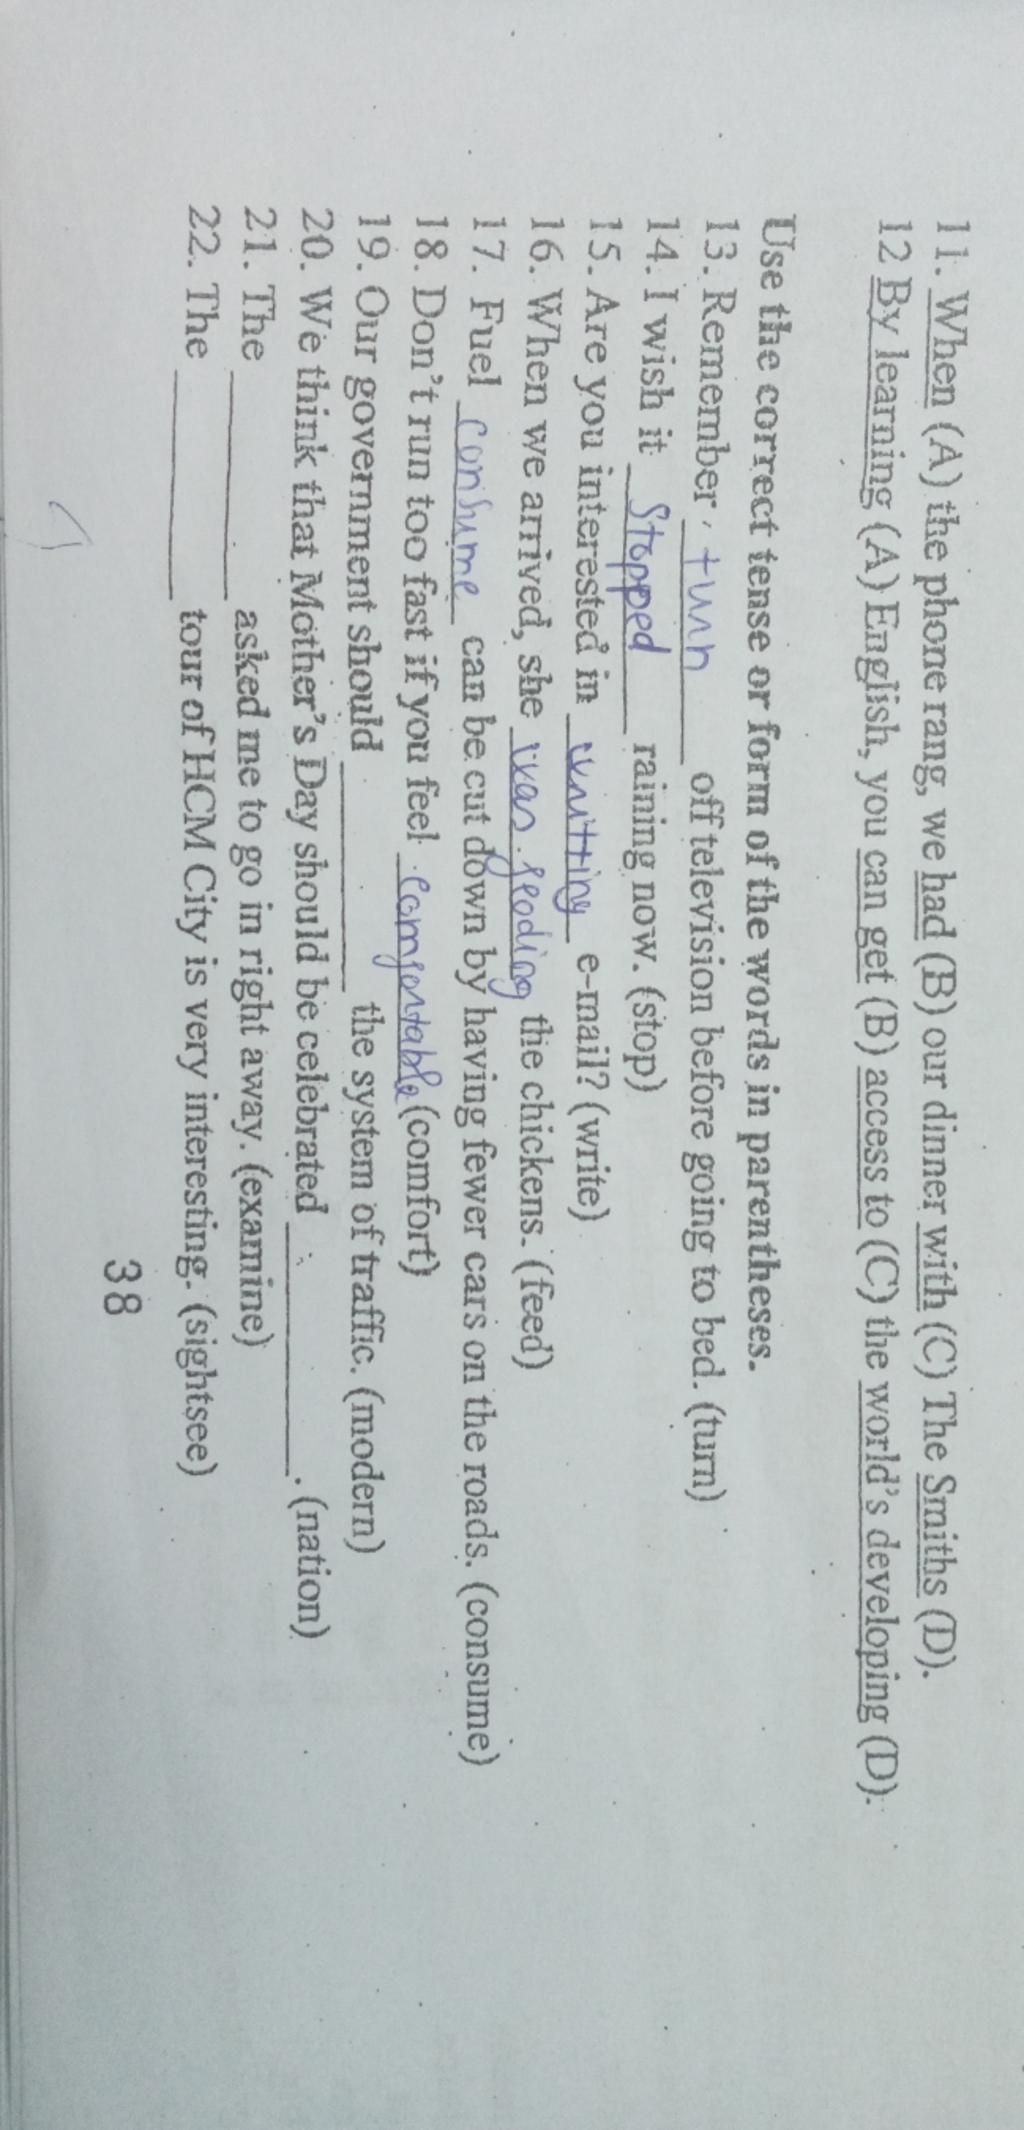 11. When (A) the phone rang, we had (B) our dinner with (C) The Smiths (D).
12 By learning (A) English, you can get (B) access to (C) the world's developing (D).
Use the correct tense or form of the words in parentheses.
13. Remember turn off television before going to bed. (turn)
14. I wish it stopped raining now. (stop)
15. Are you interested in writting e-mail? (write)
16. When we arrived, she was feeding the chickens. (feed)
17. Fuel consume can be cut down by having fewer cars on the roads. (consume)
18. Don't run too fast if you feel comfortable (comfort)
19. Our government should ____ the system of traffic. (modern)
20. We think that Mother's Day should be celebrated ____. (nation)
21. The ____ asked me to go in right away. (examine)
22. The ____ tour of HCM City is very interesting. (sightsee)
38